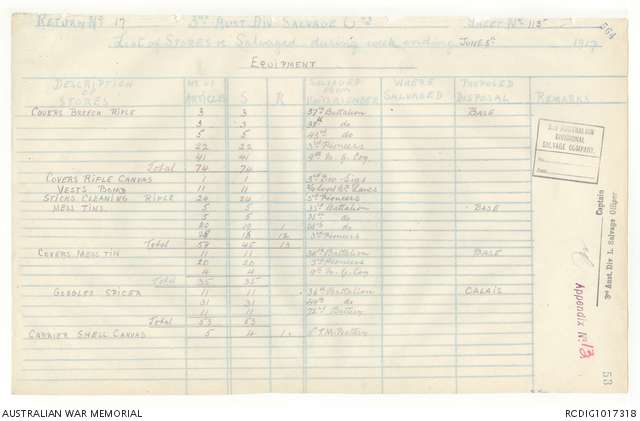 RETURN No 17 3rd AUST DIV SALVAGE SHEET No 113 564
List of STORES Salvaged during week ending JUNE 5th 1917
EQUIPMENT
DESCRIPTION OF STORES No of ARTICLES S R SALVAGED FROM WHERE SALVAGED PROPOSED DISPOSAL REMARKS
COVERS BREECH RIFLE 3 3 37th Battalion BASE
3 3 38th do
5 5 43rd do
22 22 3rd Pioneers
41 41 9th M. G. Coy.
Total 74 74
COVERS RIFLE CANVAS 1 1 3rd Div Sigs
VESTS BOMB 11 11 Lancs
STICKS CLEANING RIFLE 24 24 3rd Pioneers
MESS TINS 5 5 33rd Battalion BASE
5 5 do
20 19 1 do
28 16 12 3rd Pioneers
Total 58 45 13
COVERS MESS TIN 11 11 36th Battalion BASE
20 20 3rd Pioneers
4 4 9th M. G. Coy
Total 35 35
GOGGLES SPICER 11 11 36th Battalion CALAIS
31 31 44th do
11 11 Battery
Total 53 53
CARRIER SHELL CANVAS 5 4 1. T.M. Battery
3RD AUSTRALIAN
DIVISIONAL
SALVAGE COMPANY.
No.
Date
Captain
3rd Aust. Div L. Salvage Officer
Appendix No. 13
53
AUSTRALIAN WAR MEMORIAL RCDIG1017318